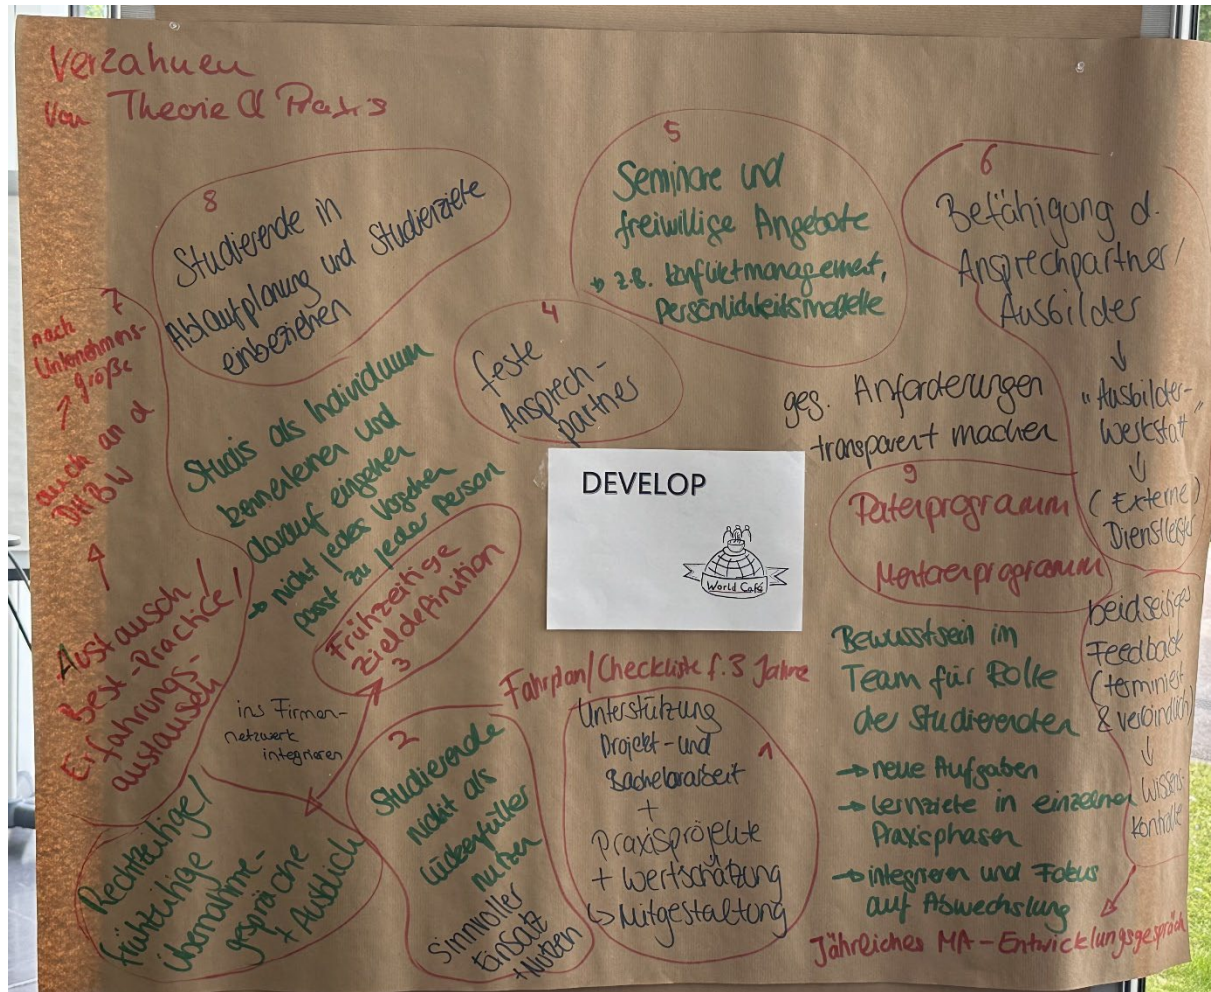 Verzahnen
von Theorie & Praxis
8
Studierende in
Ablaufplanung und Studienziele
einbeziehen
5
Seminare und
freiwillige Angebote
→ z.B. Konfliktmanagement,
Persönlichkeitsmodelle
6
Befähigung d.
Ansprechpartner/
Ausbilder
↓
"Ausbilder-
werkstatt"
↓
(Externe)
Dienstleister
7
nach
Unternehmens-
größe
auch an d
DHBW
Austausch!
Best-Practice!
Erfahrungs-
austausch
4
feste
Ansprech-
partner
Studis als Individuum
kennenlernen und
darauf eingehen
→ nicht jedes Vorgehen
passt zu jeder Person
ges. Anforderungen
transparent machen
DEVELOP
World Café
9
Patenprogramm
Mentorenprogramm
Frühzeitige
Zieldefinition
3
ins Firmen-
netzwerk
integrieren
Rechtzeitige/
frühzeitige
Übernahme-
gespräche
+ Ausblick
2
Studierende
nicht als
Lückenfüller
nutzen
Sinnvoller
Einsatz
+ Nutzen
Fahrplan/Checkliste f. 3 Jahre
1
Unterstützung
Projekt- und
Bachelorarbeit
+
Praxisprojekte
+ Wertschätzung
↳ Mitgestaltung
Bewusstsein im
Team für Rolle
der Studierenden
→ neue Aufgaben
→ Lernziele in einzelnen
Praxisphasen
→ integrieren und Fokus
auf Abwechslung
beidseitiges
Feedback
(terminiert
& verbindlich)
↓
Wissens-
kontrolle
Jährliches MA-Entwicklungsgespräch